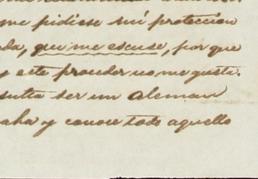 me pidiese mi proteccion
da, que me escuse, por que
y este proceder no me gusta.
sulta ser un Aleman
aha y conoce todo aquello